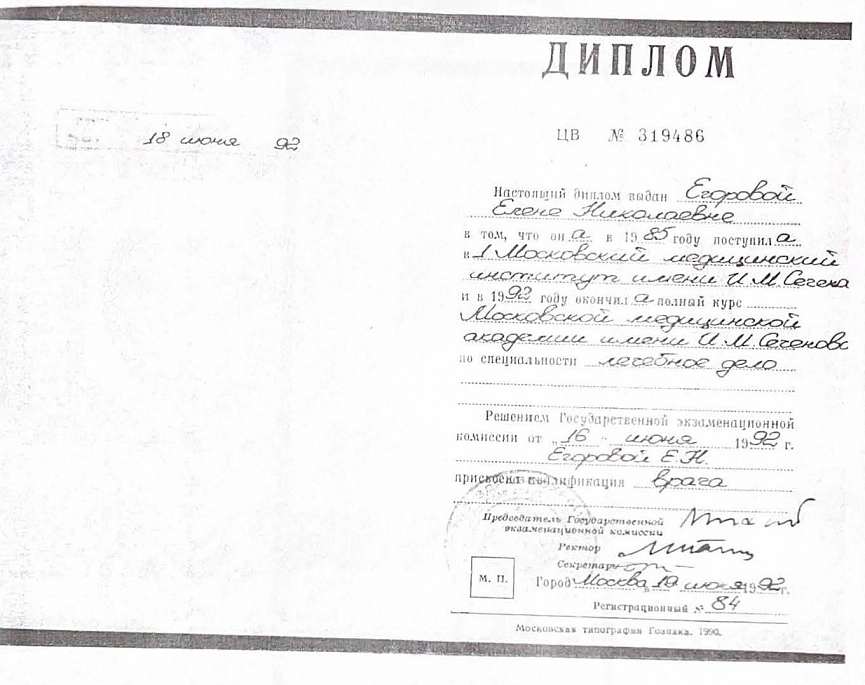 ДИПЛОМ
18 июня 92
ЦВ № 319486
Настоящий диплом выдан Егоровой
Елене Николаевне
в том, что он а в 1985 году поступил а
в I Московский медицинский
институт имени И.М.Сечено
и в 1992 году окончил а полный курс
Московской медицинской
академии имени И.М.Сеченова
по специальности лечебное дело
Решением Государственной экзаменационной
комиссии от „16" июня 1992 г.
Егоровой Е.Н.
присвоена квалификация врача
Председатель Государственной
экзаменационной комиссии
Ректор
Секретарь
М. П.
Город Москва, 19 июня 1992 г.
Регистрационный № 84
Московская типография Гознака. 1990.